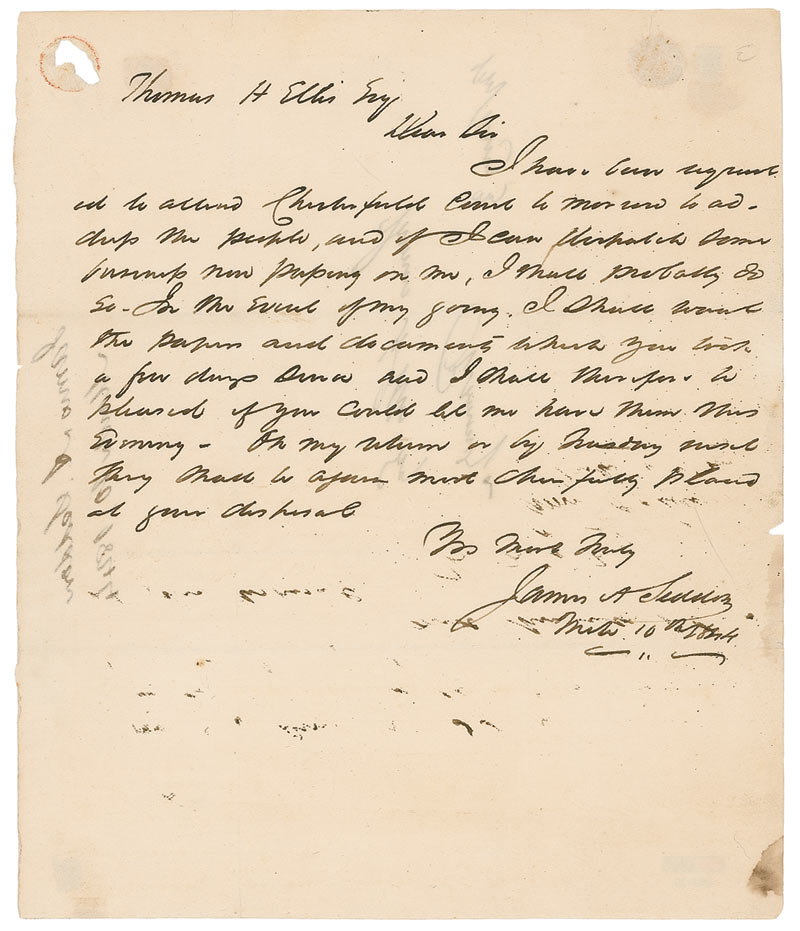 Thomas H Ellis Esq
Dear Sir
I have been request
ed to attend Chesterfield Court to morrow to ad-
dress the people, and if I can despatch some
business now pressing on me, I shall probably do
so - In the event of my going, I shall want
the papers and documents which you took
a few days since and I shall therefore be
pleased if you could let me have them this
Evening - On my return or by Tuesday next
they shall be again most cheerfully placed
at your disposal
Yrs Most Truly
James A Seddon
10th 1844